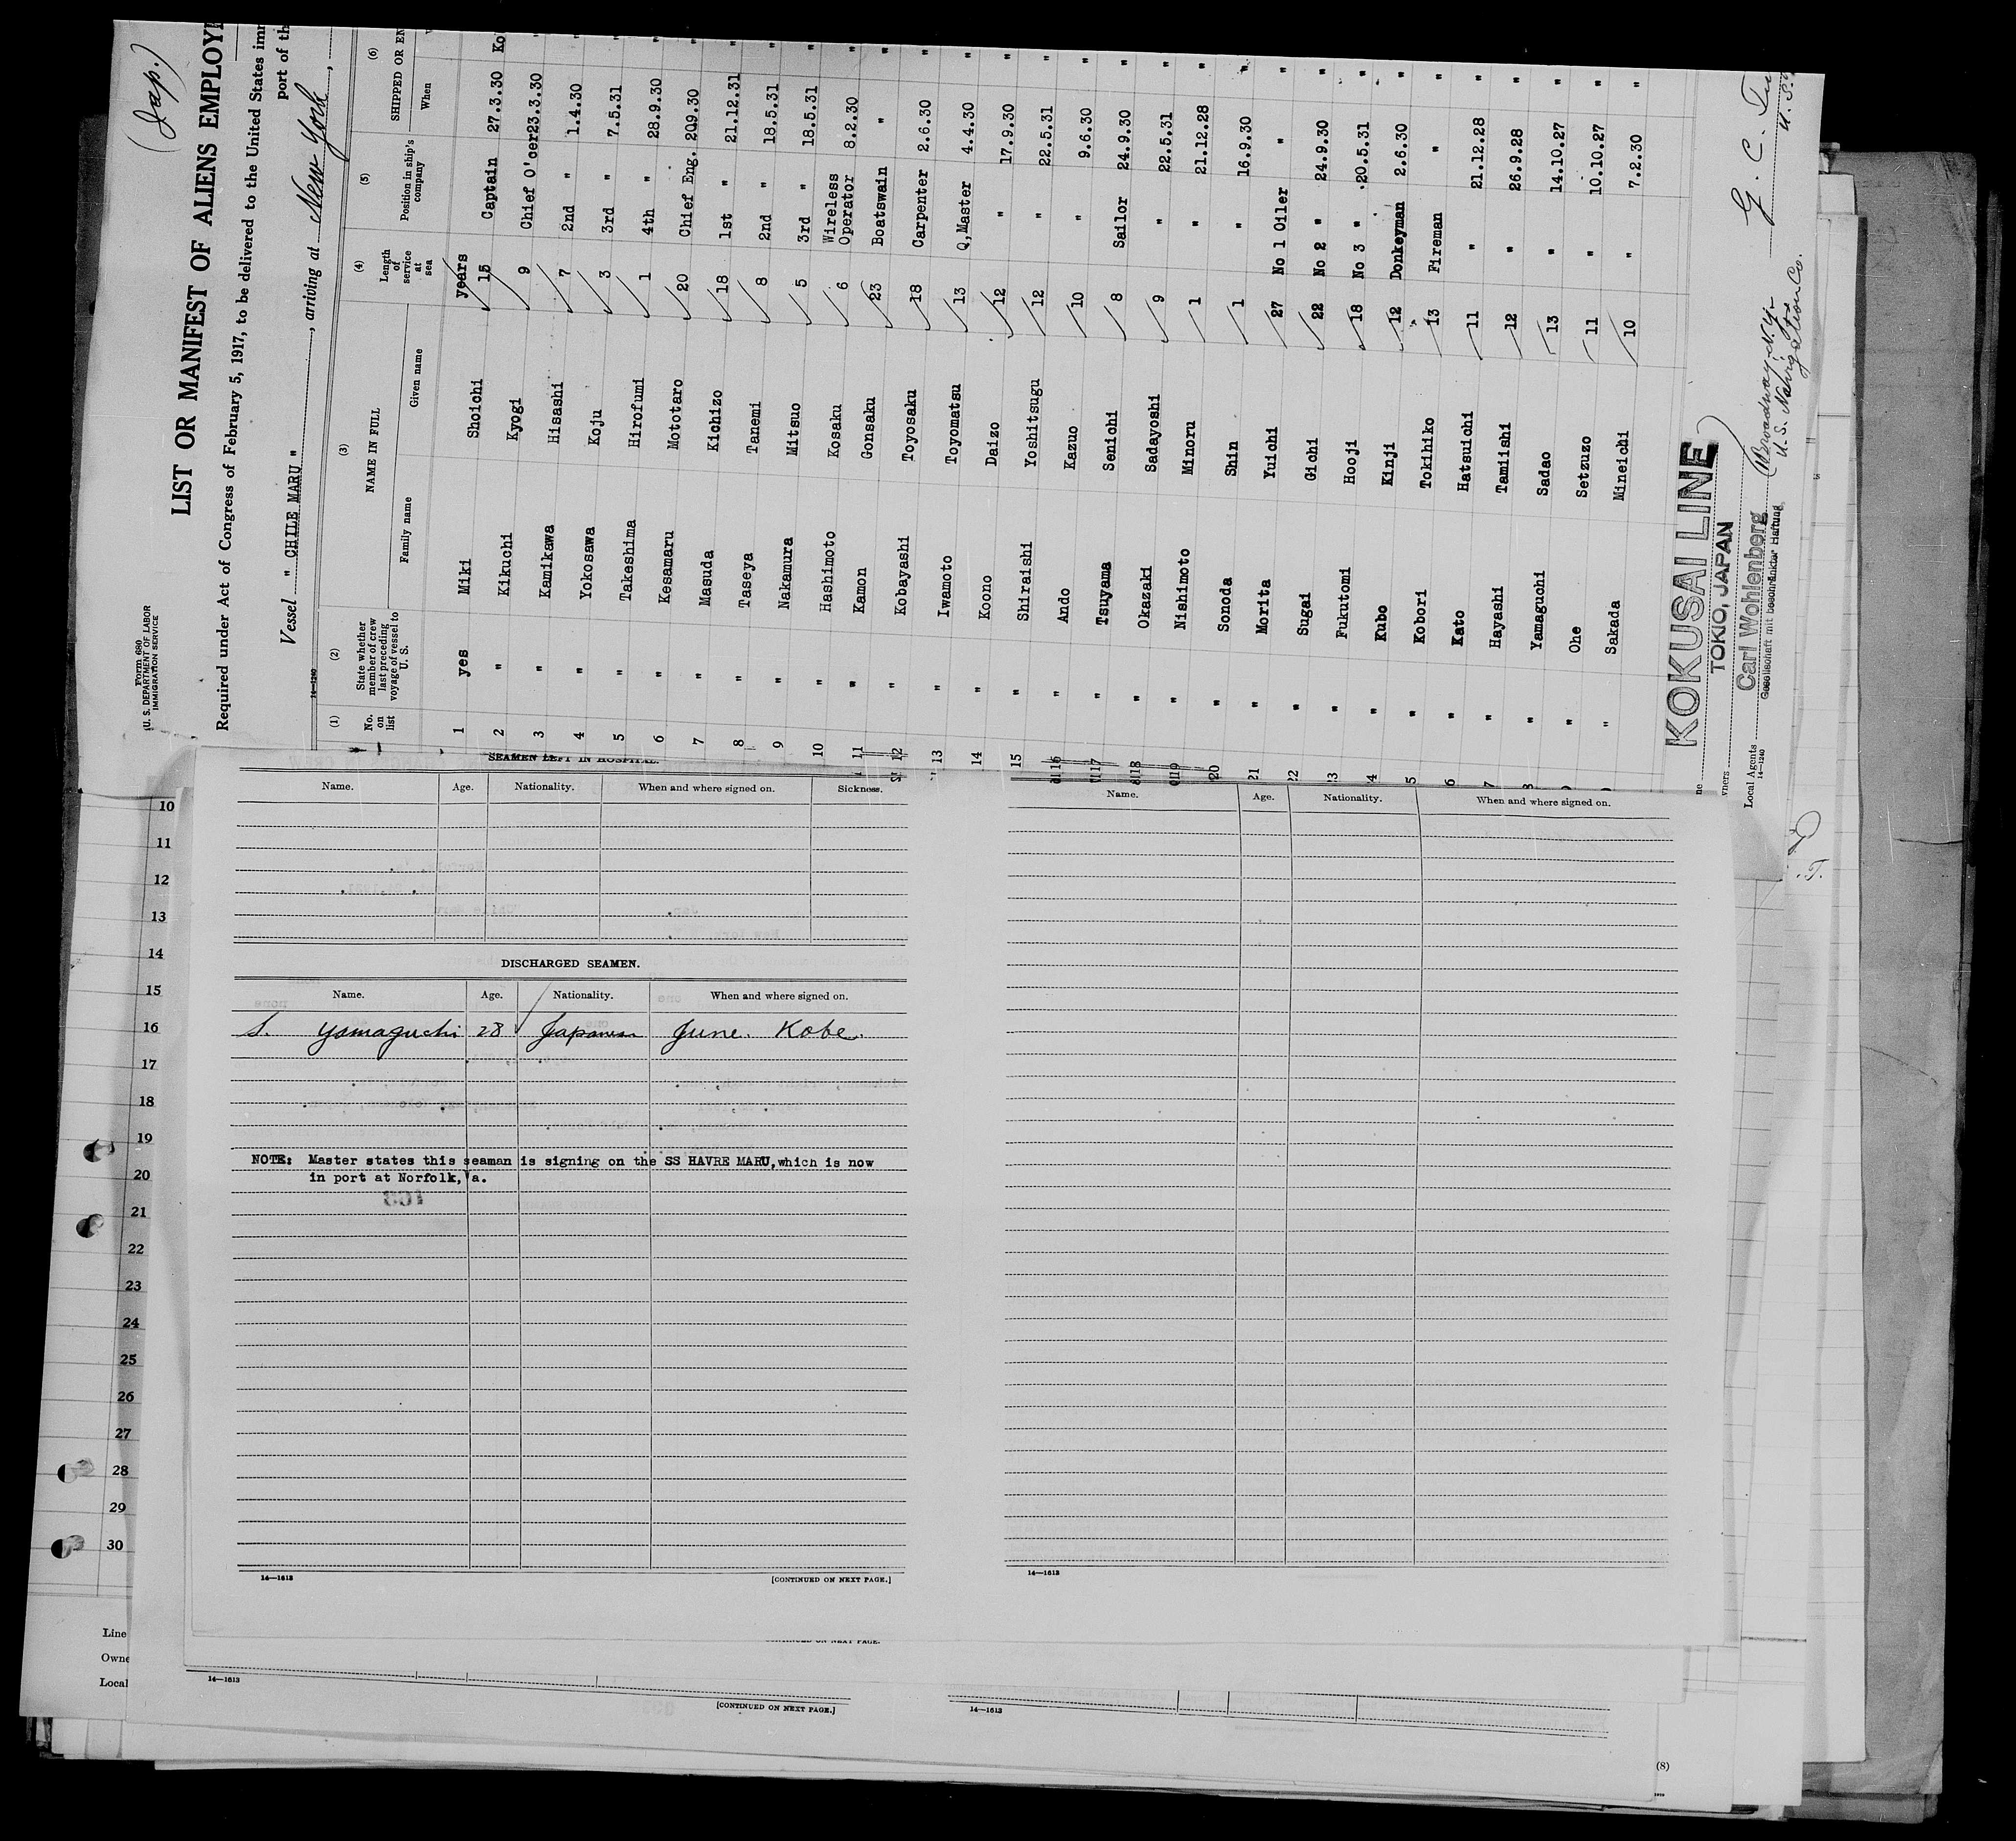 (Jap.)
Form 689
U. S. DEPARTMENT OF LABOR
IMMIGRATION SERVICE
LIST OR MANIFEST OF ALIENS EMPLOYE
Required under Act of Congress of February 5, 1917, to be delivered to the United States imm
port of th
Vessel " CHILE MARU ", arriving at New York,
14-1240
(1) (2) (3) (4) (5) (6)
No. on list State whether member of crew last preceding voyage of vessel to U. S. NAME IN FULL Length of service at sea Position in ship's company SHIPPED OR EN
Family name Given name When
years
1 yes Miki Shoichi 15 Captain 27.3.30 Ko
2 " Kikuchi Kyogi 9 Chief O'cer 23.3.30 "
3 " Kamikawa Hisashi 7 2nd " 1.4.30 "
4 " Yokosawa Koju 3 3rd " 7.5.31 "
5 " Takeshima Hirofumi 1 4th " 28.9.30 "
6 " Kesamaru Mototaro 20 Chief Eng. 20.9.30 "
7 " Masuda Kichizo 18 1st " 21.12.31 "
8 " Taseya Tanemi 8 2nd " 18.5.31 "
9 " Nakamura Mitsuo 5 3rd " 18.5.31 "
10 " Hashimoto Kosaku 6 Wireless Operator 8.2.30 "
11 " Kamon Gonsaku 23 Boatswain " "
12 " Kobayashi Toyosaku 18 Carpenter 2.6.30 "
13 " Iwamoto Toyomatsu 13 Q,Master 4.4.30 "
14 " Koono Daizo 12 " 17.9.30 "
15 " Shiraishi Yoshitsugu 12 " 22.5.31 "
16 " Ando Kazuo 10 " 9.6.30 "
17 " Tsuyama Senichi 8 Sailor 24.9.30 "
18 " Okazaki Sadayoshi 9 " 22.5.31 "
19 " Nishimoto Minoru 1 " 21.12.28 "
20 " Sonoda Shin 1 " 16.9.30 "
21 " Morita Yuichi 27 No 1 Oiler " "
22 " Sugai Gichi 22 No 2 " 24.9.30 "
23 " Fukutomi Hooji 18 No 3 " 20.5.31 "
4 " Kubo Kinji 12 Donkeyman 2.6.30 "
5 " Kobori Tokihiko 13 Fireman " "
6 " Kato Hatsuichi 11 " 21.12.28 "
7 " Hayashi Tamiishi 12 " 26.9.28 "
8 " Yamaguchi Sadao 13 " 14.10.27 "
" Ohe Setzuzo 11 " 10.10.27 "
" Sakada Mineichi 10 " 7.2.30 "
KOKUSAI LINE
TOKIO, JAPAN
Carl Wohlenberg
Gesellschaft mit beschränkter Haftung
Local Agents
14-1240
Broadway N.Y.
U. S. Navigation Co.
G. C.
SEAMEN LEFT IN HOSPITAL.
Name. Age. Nationality. When and where signed on. Sickness.
DISCHARGED SEAMEN.
Name. Age. Nationality. When and where signed on.
S. Yamaguchi 28 Japanese June. Kobe.
NOTE: Master states this seaman is signing on the SS HAVRE MARU, which is now
in port at Norfolk, Va.
14—1613
[CONTINUED ON NEXT PAGE.]
Name. Age. Nationality. When and where signed on.
14—1613
10
11
12
13
14
15
16
17
18
19
20
21
22
23
24
25
26
27
28
29
30
Line
Owne
Local
CONTINUED ON NEXT PAGE.
14—1613
[CONTINUED ON NEXT PAGE.]
14—1613
(8)